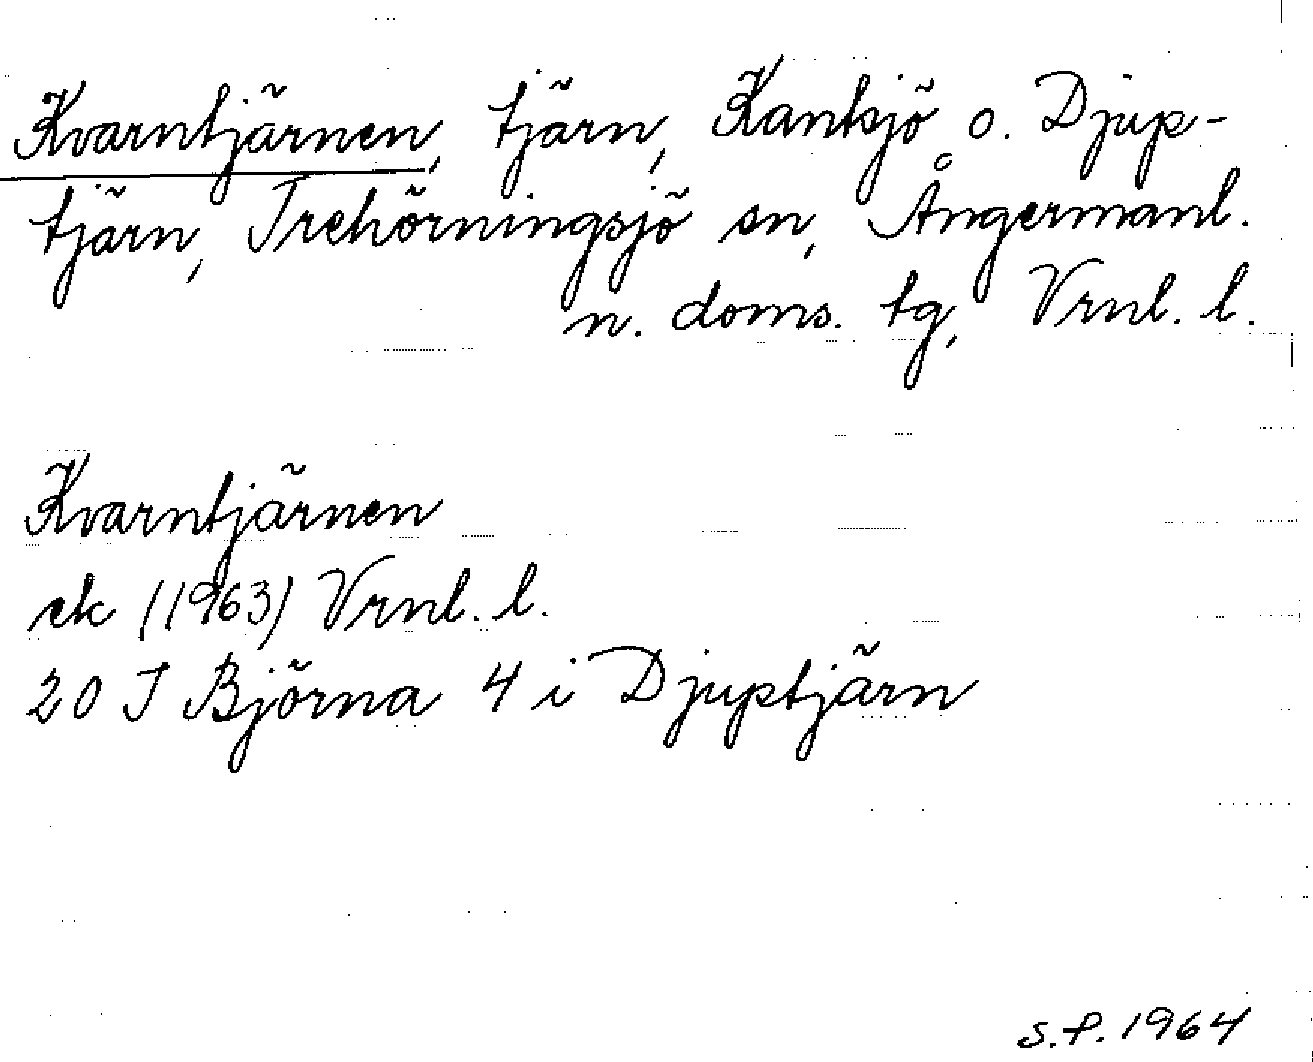 Kvarntjärnen, tjärn, Kanksjö o. Djup-
tjärn, Trehörningsjö sn, Ångermanl.
n. doms. tg, Vrnl. l.
Kvarntjärnen
ek (1963) Vrnl. l.
20 J Björna 4 i Djuptjärn
S.P. 1964